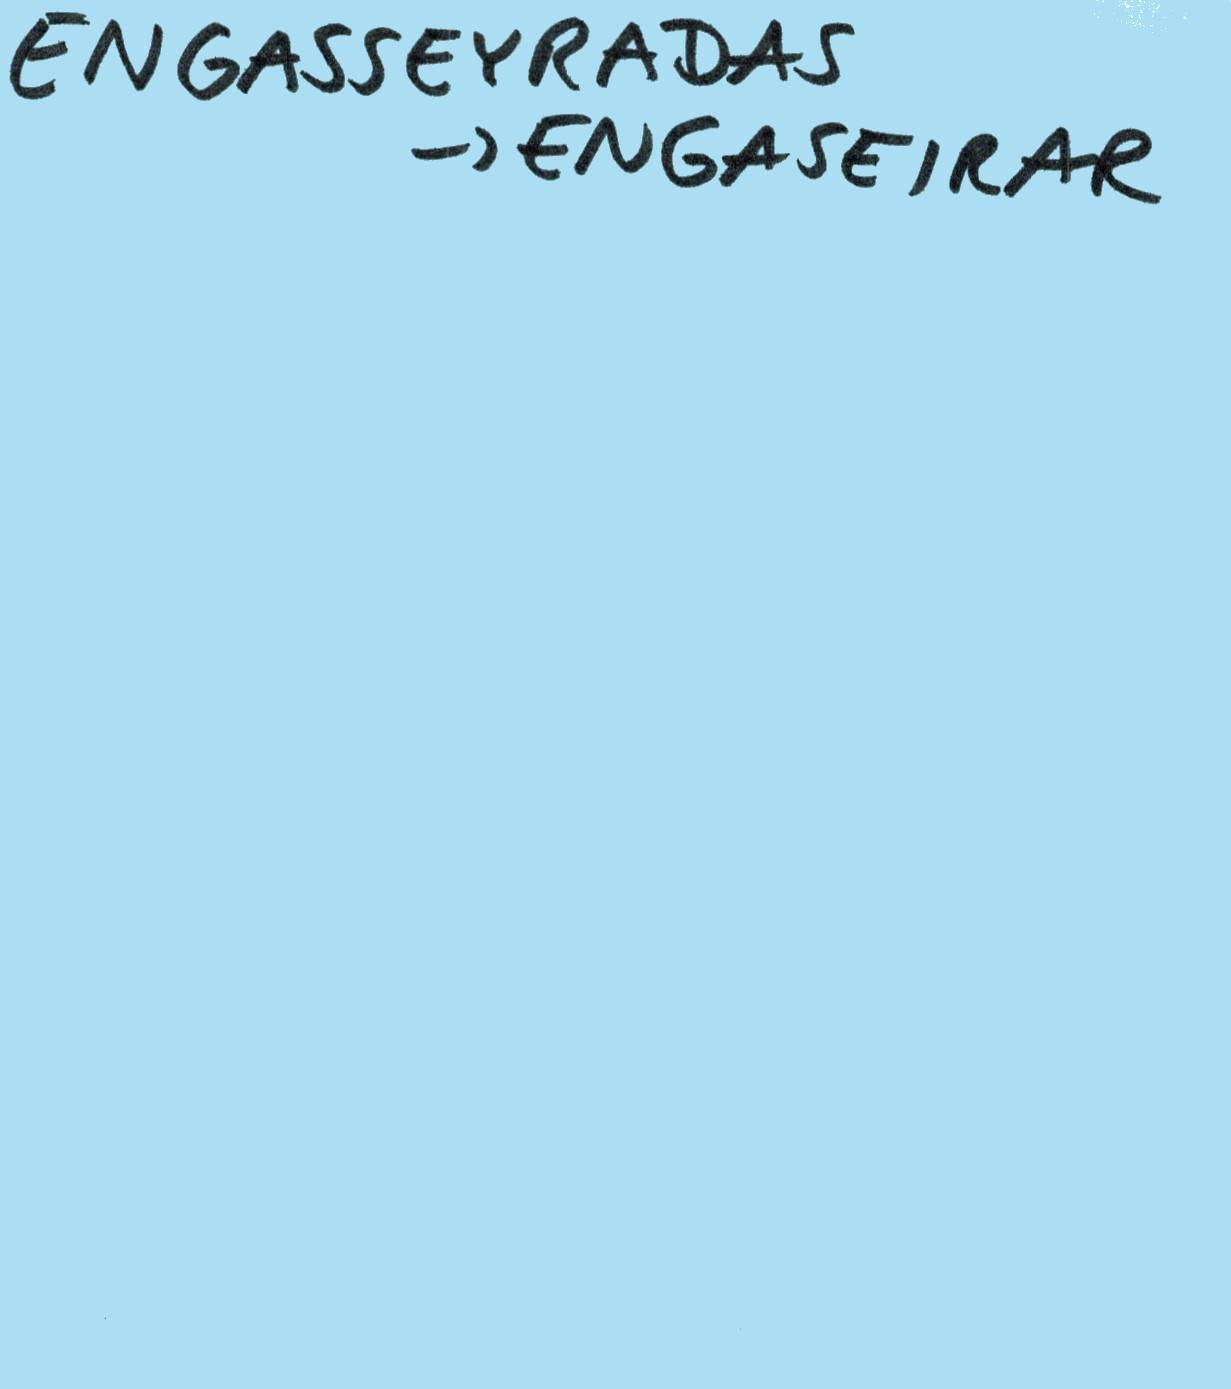 ENGASSEYRADAS
→ ENGASEIRAR